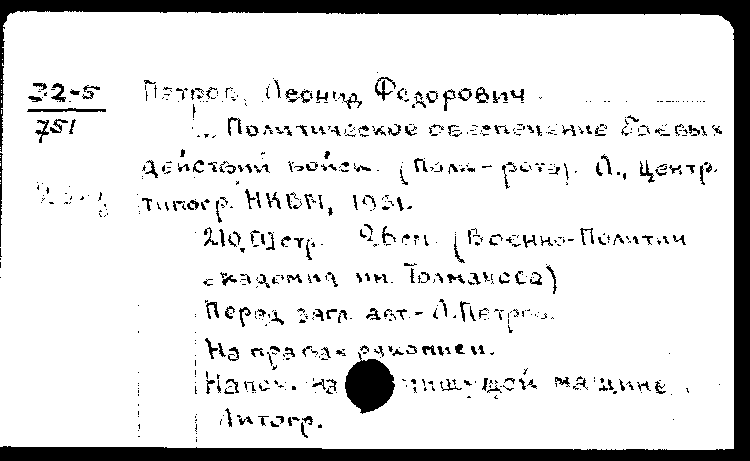 32-5
751
Петров, Леонид Федорович
... Политическое обеспечение боевых
действий войск. (Полк - рота). Л., Центр.
типогр. НКВМ, 1931.
210, [1] стр. 26 см. (Военно-Политич
академия им. Толмачева)
Перед загл. авт. - Л. Петров.
На правах рукописи.
Напеч. на пишущей машине.
Литогр.